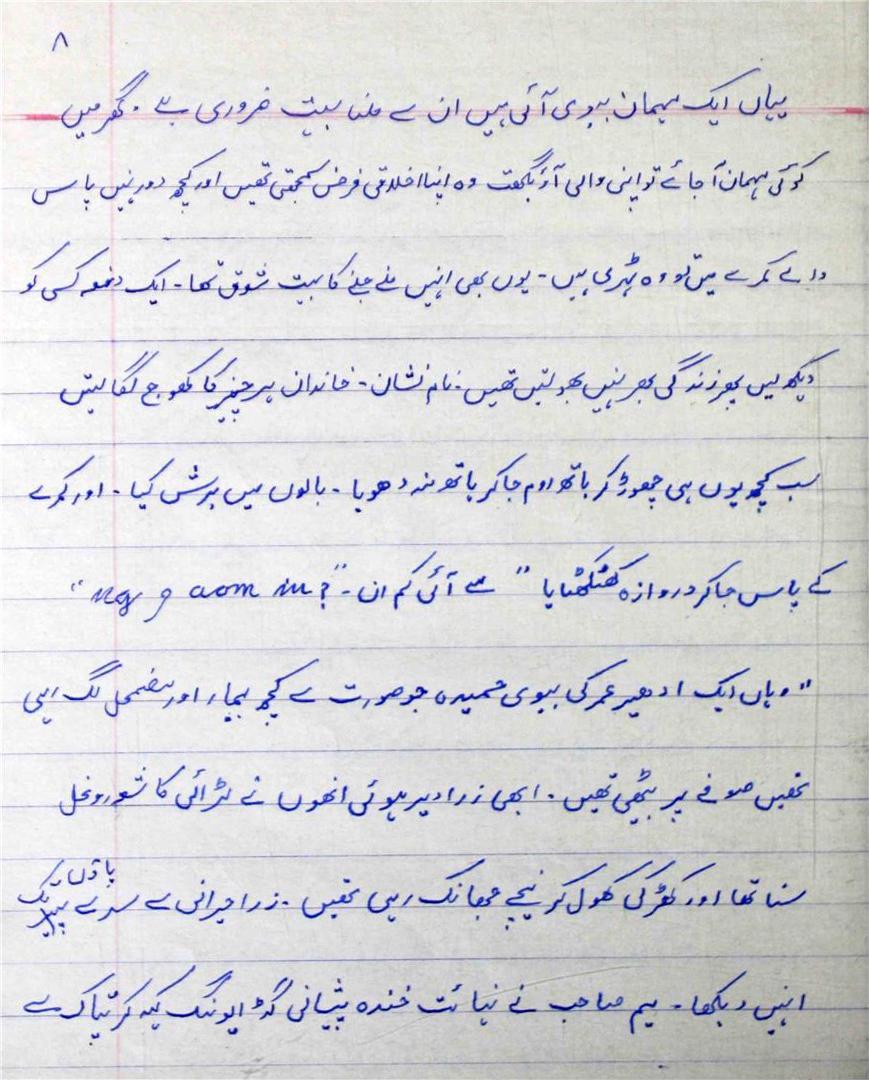 ۸
یہاں ایک مہمان بیوی آئی ہیں ان سے ملنا بہت ضروری ہے ۔ گھر میں
کوئی مہمان آ جائے تو اپنی والی آؤ بھگت وہ اپنا اخلاقی فرض سمجھتی تھیں اور کچھ دور نہیں پاس
والے کمرے میں تو وہ ٹہری ہیں ۔ یوں بھی انہیں ملنے جلنے کا بہت شوق تھا ۔ ایک دفعہ کسی کو
دیکھ لیں پھر زندگی بھر نہیں بھولتیں تھیں ۔ نام نشان ۔ خاندان ہر چیز کا کھوج لگا لیتیں
سب کچھ یوں ہی چھوڑ کر باتھ روم جا کر ہاتھ منہ دھویا ۔ بالوں میں برش کیا ۔ اور کمرے
کے پاس جا کر دروازہ کھٹکھٹایا " مے آئی کم ان ۔ "? may I com in "
" وہاں ایک ادھیڑ عمر کی بیوی حمیدہ جو صورت سے کچھ بیمار اور مضمحل لگ رہی
تھیں صوفے پر بیٹھی تھیں ۔ ابھی زرا دیر ہوئی انھوں نے لڑائی کا شور و غل
سنا تھا اور کھڑکی کھول کر نیچے جھانک رہی تھیں ۔ زرا حیرانی سے سر سے پاؤں تک
انہیں دیکھا ۔ میم صاحب نے نہائت خندہ پیشانی گڈ ایوننگ کہہ کر تپاک سے